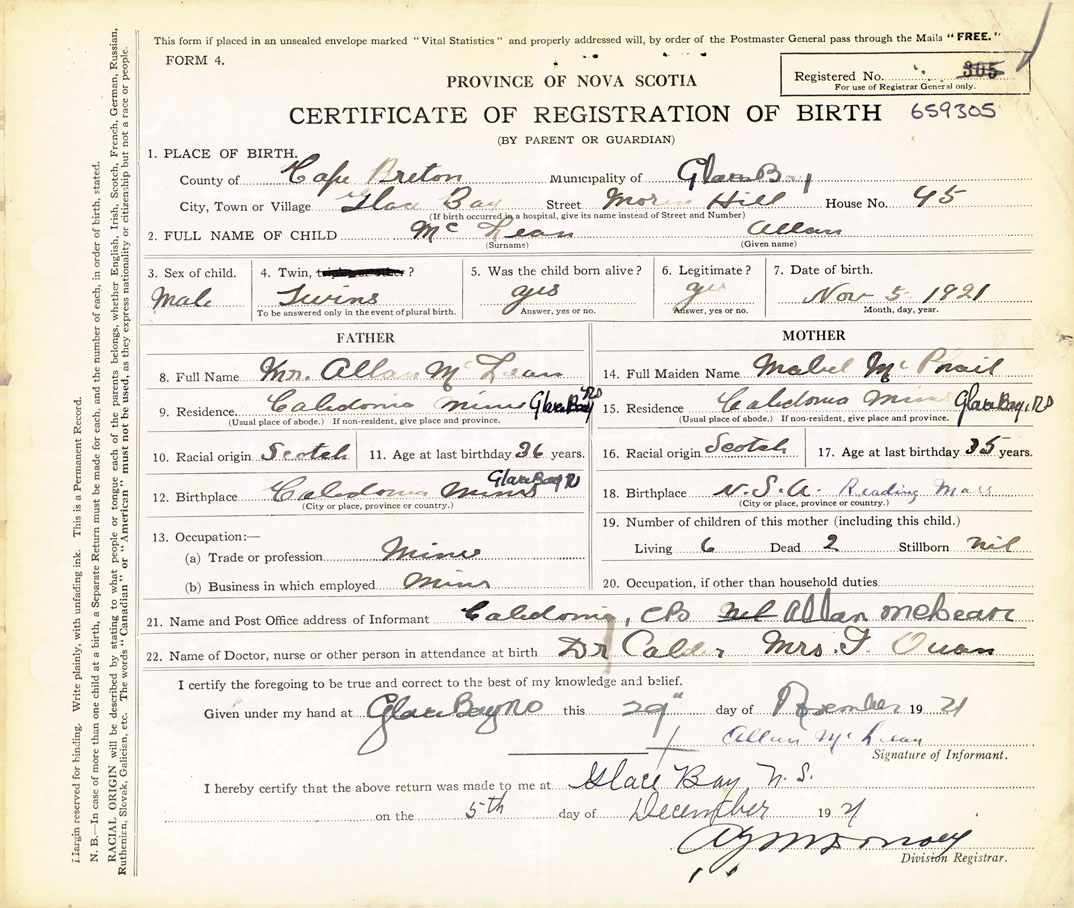 This form if placed in an unsealed envelope marked "Vital Statistics" and properly addressed will, by order of the Postmaster General pass through the Mails "FREE."
FORM 4.
Registered No. 305
For use of Registrar General only.
PROVINCE OF NOVA SCOTIA
CERTIFICATE OF REGISTRATION OF BIRTH 659305
(BY PARENT OR GUARDIAN)
1. PLACE OF BIRTH.
County of Cape Breton Municipality of Glace Bay
City, Town or Village Glace Bay Street Hill House No. 45
(If birth occurred in a hospital, give its name instead of Street and Number)
2. FULL NAME OF CHILD McLean Allan
(Surname) (Given name)
3. Sex of child. 4. Twin, triplet or other? 5. Was the child born alive? 6. Legitimate? 7. Date of birth.
Male Twins yes yes Nov 5 1921
To be answered only in the event of plural birth. Answer, yes or no. Answer, yes or no. Month, day, year.
FATHER MOTHER
8. Full Name Mr. Allan McLean 14. Full Maiden Name Mabel McPhail
9. Residence. Caledonia Mines Glace Bay NS 15. Residence Caledonia Mines Glace Bay, NS
(Usual place of abode.) If non-resident, give place and province. (Usual place of abode.) If non-resident, give place and province.
10. Racial origin Scotch 11. Age at last birthday 36 years. 16. Racial origin Scotch 17. Age at last birthday 35 years.
12. Birthplace Caledonia Mines Glace Bay NS 18. Birthplace U.S.A. Reading Mass
(City or place, province or country.) (City or place, province or country.)
13. Occupation:— 19. Number of children of this mother (including this child.)
(a) Trade or profession Miner Living 6 Dead 2 Stillborn nil
(b) Business in which employed Mine 20. Occupation, if other than household duties
21. Name and Post Office address of Informant Caledonia, CB Allan McLean
22. Name of Doctor, nurse or other person in attendance at birth Dr Calder Mrs. F.
I certify the foregoing to be true and correct to the best of my knowledge and belief.
Given under my hand at Glace Bay NS this 29" day of November 1921
Allan McLean
Signature of Informant.
I hereby certify that the above return was made to me at Glace Bay N.S.
on the 5th day of December 1921
Division Registrar.
Margin reserved for binding. Write plainly, with unfading ink. This is a Permanent Record.
N. B.—In case of more than one child at a birth, a Separate Return must be made for each, and the number of each, in order of birth, stated.
RACIAL ORIGIN will be described by stating to what people or tongue each of the parents belongs, whether English, Irish, Scotch, French, German, Russian,
Ruthenian, Slovak, Galician, etc. The words "Canadian" or "American" must not be used, as they express nationality or citizenship but not a race or people.